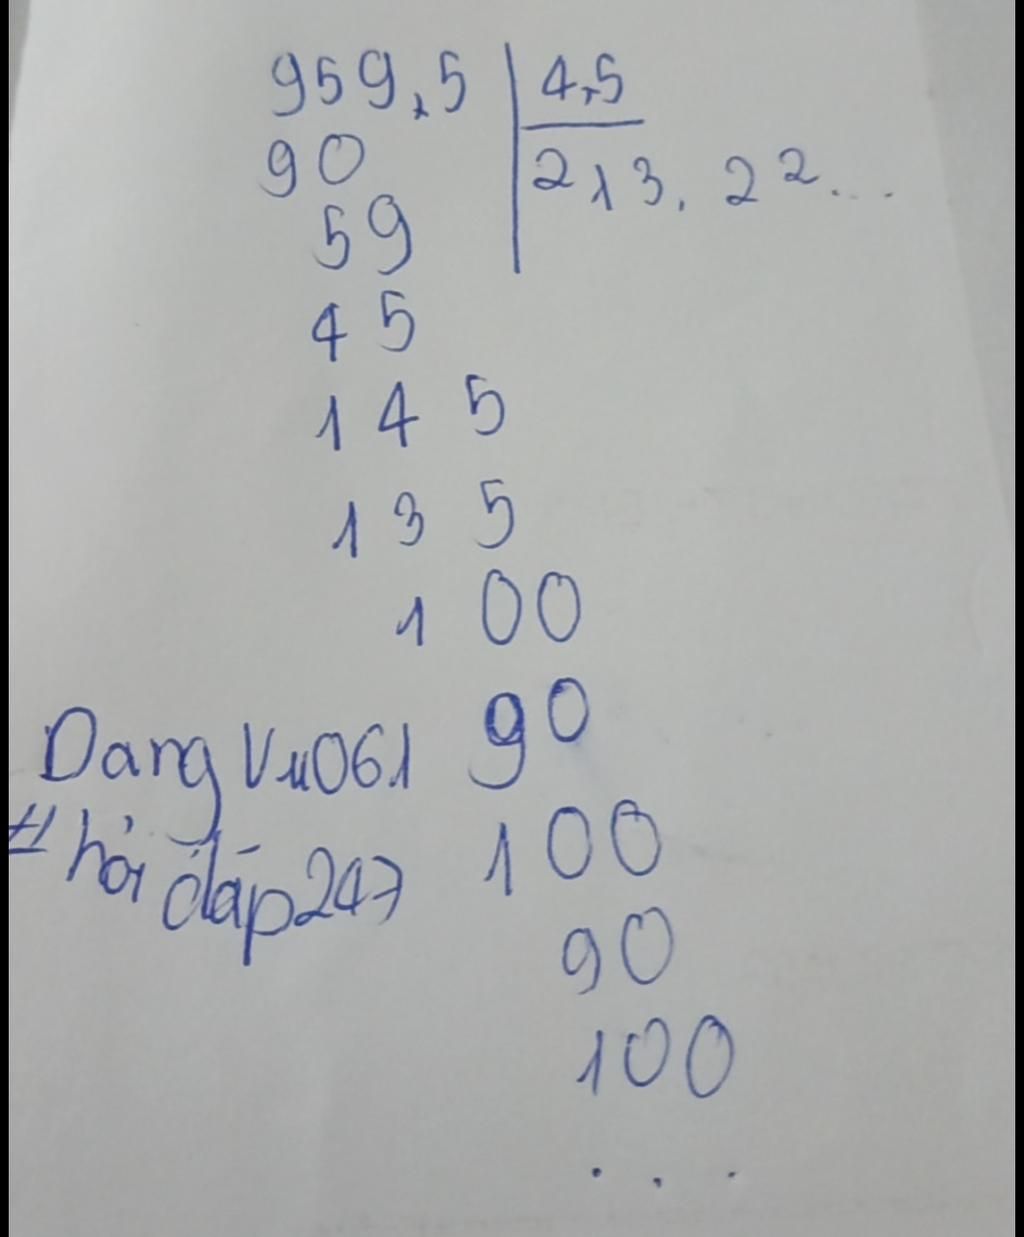 959,5 4,5
90 213,22...
59
45
145
135
100
90
DangVu061
#hỏi đáp247
100
90
100
...